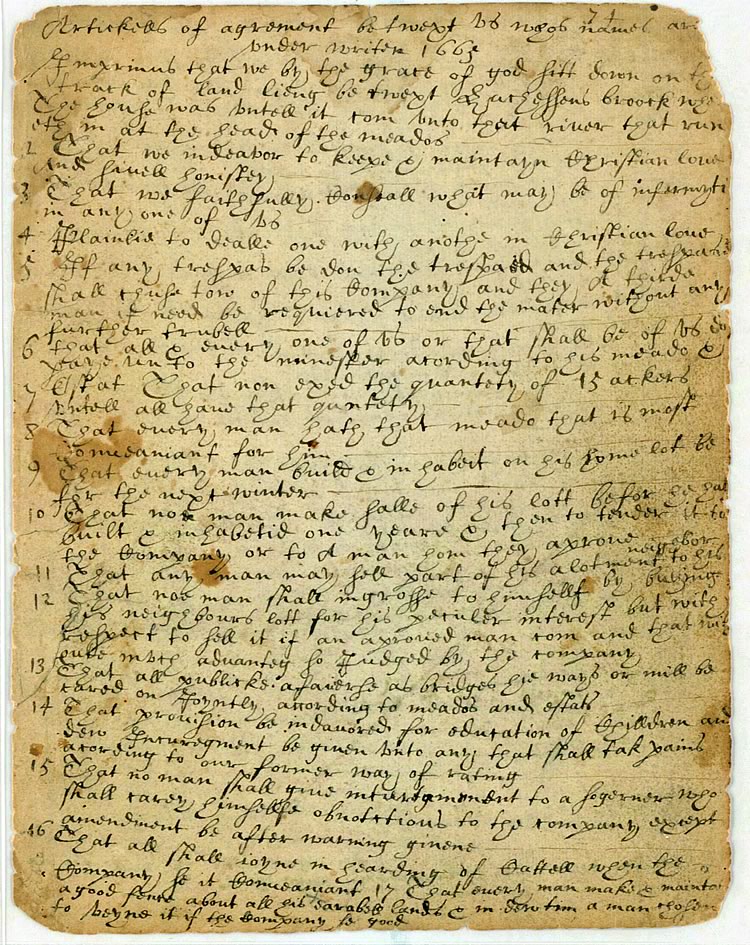 Artickells of agrement be twext vs whos names are
vnder writen 1663
Imprimus that we by the grace of god sitt down on th
track of land lieng be twext Huchessens broock whe
the house was vntell it com vnto that river that run
eth in at the head of the meados
2 That we indeavor to keepe & maintayn Christian love
and sivell honisty
3 That we faithfully Counsall what may be of infermyti
in any one of vs
4 Plainlie to dealle one with anothe in Christian love
5 If any trespas be don the trespased and the trespaser
shall chuse tow of this Company and they A thirde
man if need be requiered to end the mater without any
further trubell
6 that all & every one of vs or that shall be of vs do
paye vnto the minester acording to his meado &
Estat
7 That non exed the quantety of 15 ackers
vntell all have that quntety
8 That every man hath that meado that is most
Conveaniant for him
9 That every man build & inhabit on his home lot be
for the next winter
10 That no man make salle of his lott befor he hath
built & inhabetid one yeare & then to tender it to
the Company or to A man hom they aprove
11 That any man may sell part of his alotment to his neighbor
12 That noe man shall ingrosse to himsellf by buying
his neighbours lott for his peculer interest but with
respect to sell it if an aproved man com and that with
oute mvch advantey to Judged by the company
13 That all publicke afaierse as bridges hie ways or mill be
caried on Joyntly acording to meados and estats
14 That provision be indavored for education of Chilldren and
then Incuregment be given vnto any that shall tak pains
acording to our former way of rating
15 That no man shall give incuragment to a sogerner who
shall carey himsellfe obnoctious to the company except
amendment be after warning givene
16 That all shall ioyne in hearding of Cattell when the
Company se it Conveaniant 17 That every man make & maintain
a good fence about all his earabell lands & in dew tim a man chosen
to veyne it if the Company se good